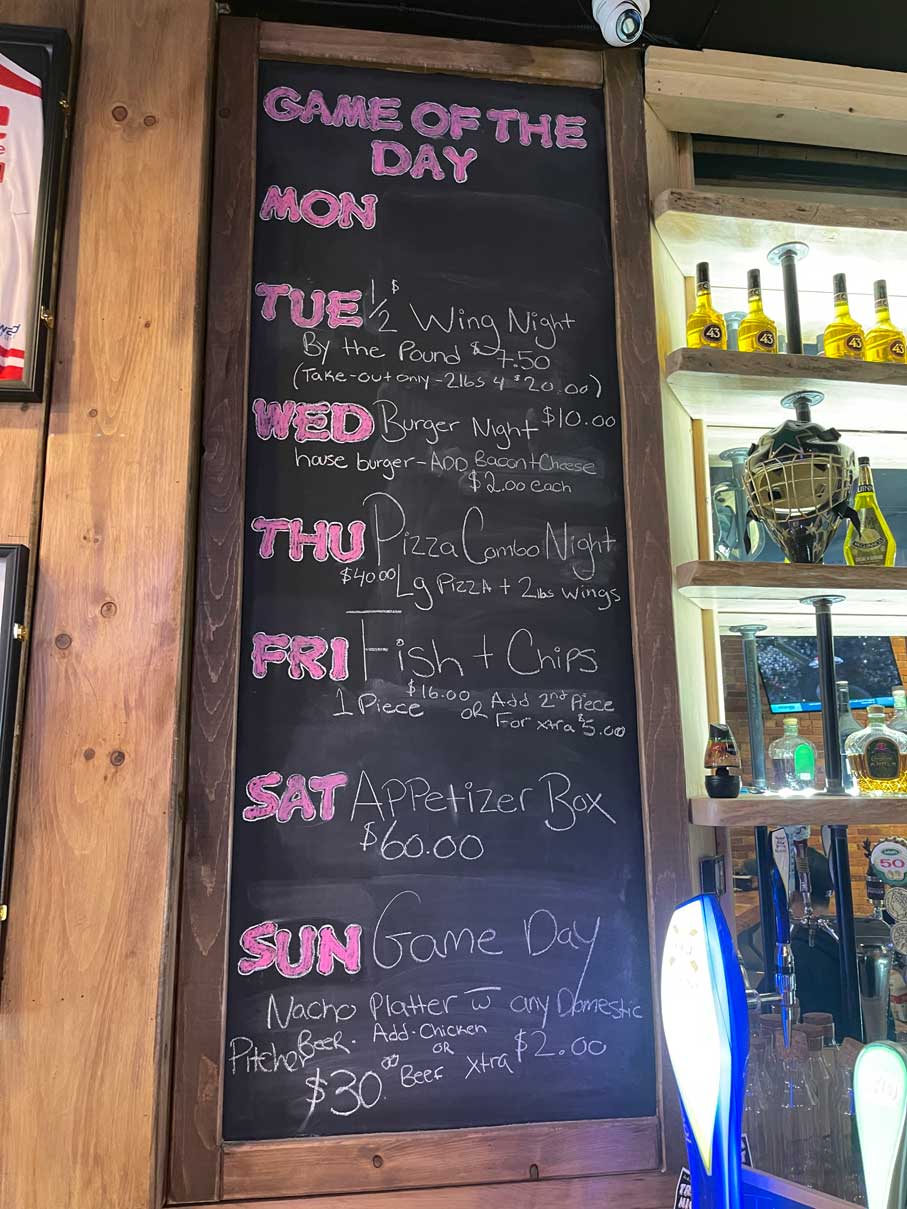 GAME OF THE
DAY
MON
TUE 1/2 $ Wing Night
By the Pound $7.50
(Take-out only-2lbs 4 $20.00)
WED Burger Night $10.00
house burger-ADD Bacon+Cheese
$2.00 each
THU Pizza Combo Night
$40.00 Lg Pizza + 2lbs wings
FRI Fish + Chips
1 Piece $16.00 OR Add 2nd Piece
For xtra $5.00
SAT Appetizer Box
$60.00
SUN Game Day
Nacho Platter w any Domestic
Pitcher Beer. Add-Chicken
OR
Beef xtra $2.00
$30.00
43
43
43
43
50